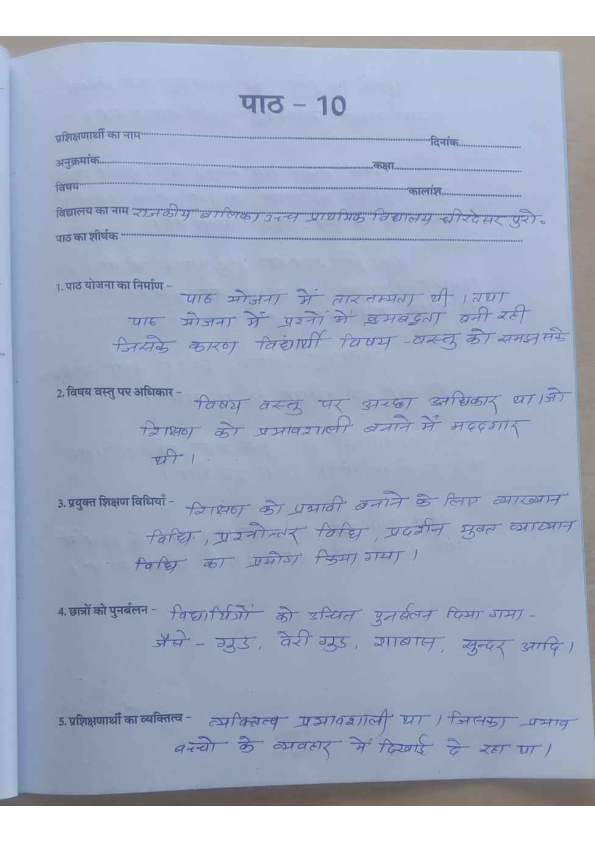 पाठ – 10
प्रशिक्षणार्थी का नाम दिनांक
अनुक्रमांक कक्षा
विषय कालांश
विद्यालय का नाम राजकीय बालिका उच्च प्राथमिक विद्यालय धीरदेसर पुरो.
पाठ का शीर्षक
1. पाठ योजना का निर्माण – पाठ योजना में तारतम्यता थी । तथा
पाठ योजना में प्रश्नों में क्रमबद्धता बनी रही
जिसके कारण विद्यार्थी विषय-वस्तु को समझ सके
2. विषय वस्तु पर अधिकार – विषय वस्तु पर अच्छा अधिकार था । जो
शिक्षण को प्रभावशाली बनाने में मददगार
थी ।
3. प्रयुक्त शिक्षण विधियाँ – शिक्षण को प्रभावी बनाने के लिए व्याख्यान
विधि, प्रश्नोत्तर विधि, प्रदर्शन युक्त व्याख्यान
विधि का प्रयोग किया गया ।
4. छात्रों को पुनर्बलन – विद्यार्थियों को उचित पुनर्बलन दिया गया -
जैसे - गुड, वेरी गुड, शाबास, सुन्दर आदि ।
5. प्रशिक्षणार्थी का व्यक्तित्व – व्यक्तित्व प्रभावशाली था । जिसका प्रभाव
बच्चो के व्यवहार में दिखाई दे रहा था ।